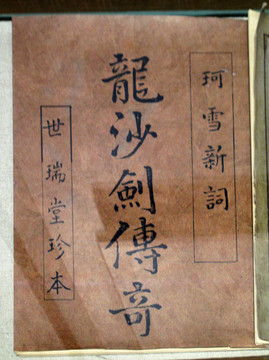 珂雪新詞
龍沙劍傳奇
世瑞堂珍本